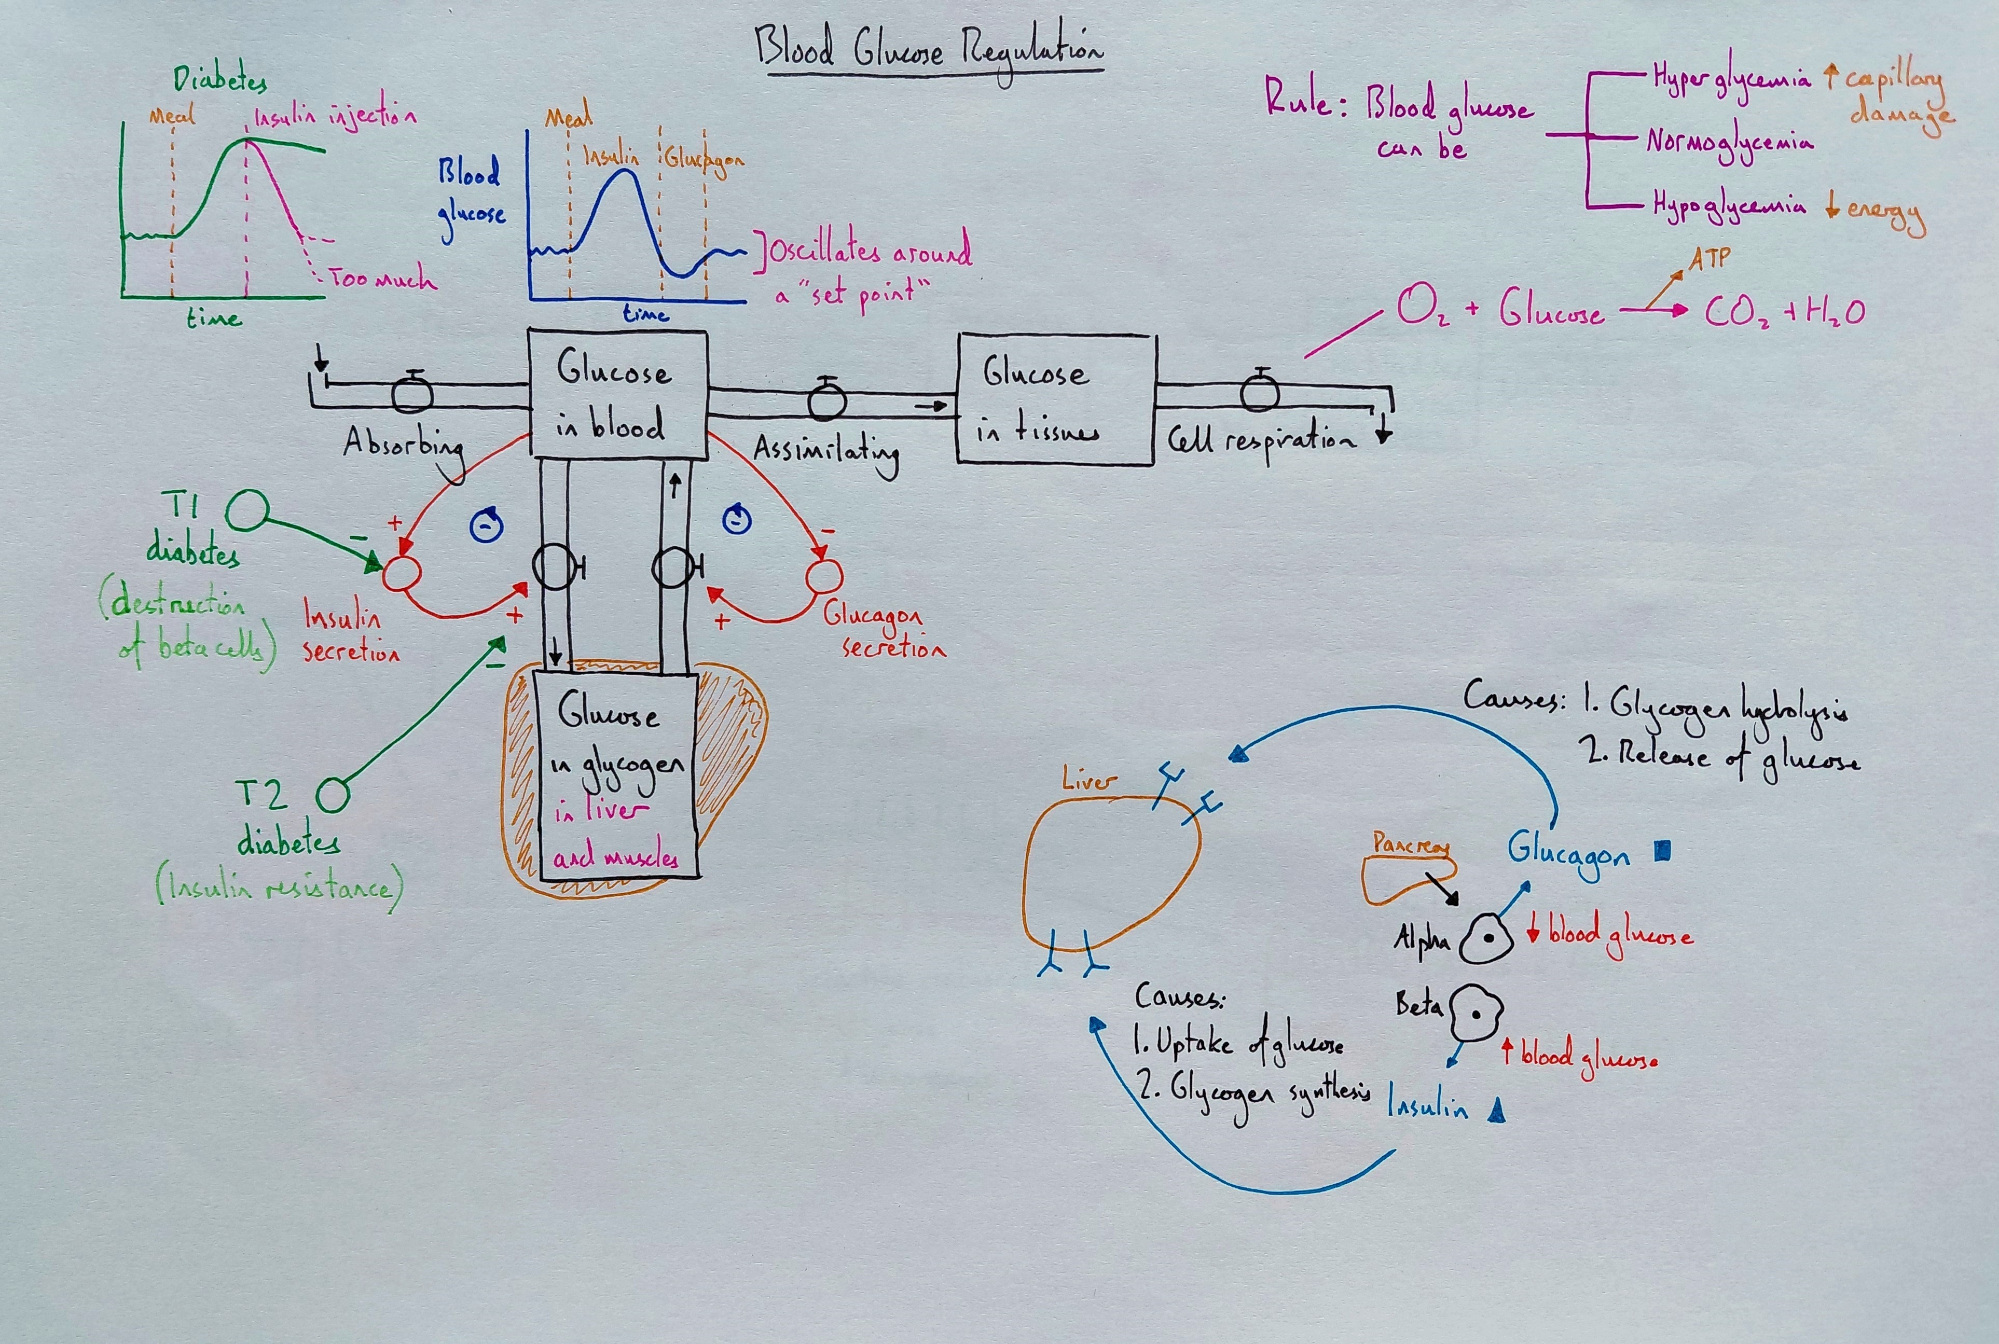 Blood Glucose Regulation
Diabetes
Meal
Insulin injection
Too much
time
Meal
Insulin
Glucagon
Blood
glucose
Oscillates around
a "set point"
time
Rule: Blood glucose
can be
Hyperglycemia ↑ capillary
damage
Normoglycemia
Hypoglycemia ↓ energy
ATP
O₂ + Glucose → CO₂ + H₂O
Glucose
in blood
Glucose
in tissues
Absorbing
Assimilating
Cell respiration
T1
diabetes
(destruction
of beta cells)
-
+
-
-
-
Insulin
secretion
+
+
Glucagon
secretion
-
T2
diabetes
(Insulin resistance)
Glucose
in glycogen
in liver
and muscles
Causes: 1. Glycogen hydrolysis
2. Release of glucose
Liver
Pancreas
Glucagon
Alpha
↓ blood glucose
Beta
↑ blood glucose
Causes:
1. Uptake of glucose
2. Glycogen synthesis
Insulin